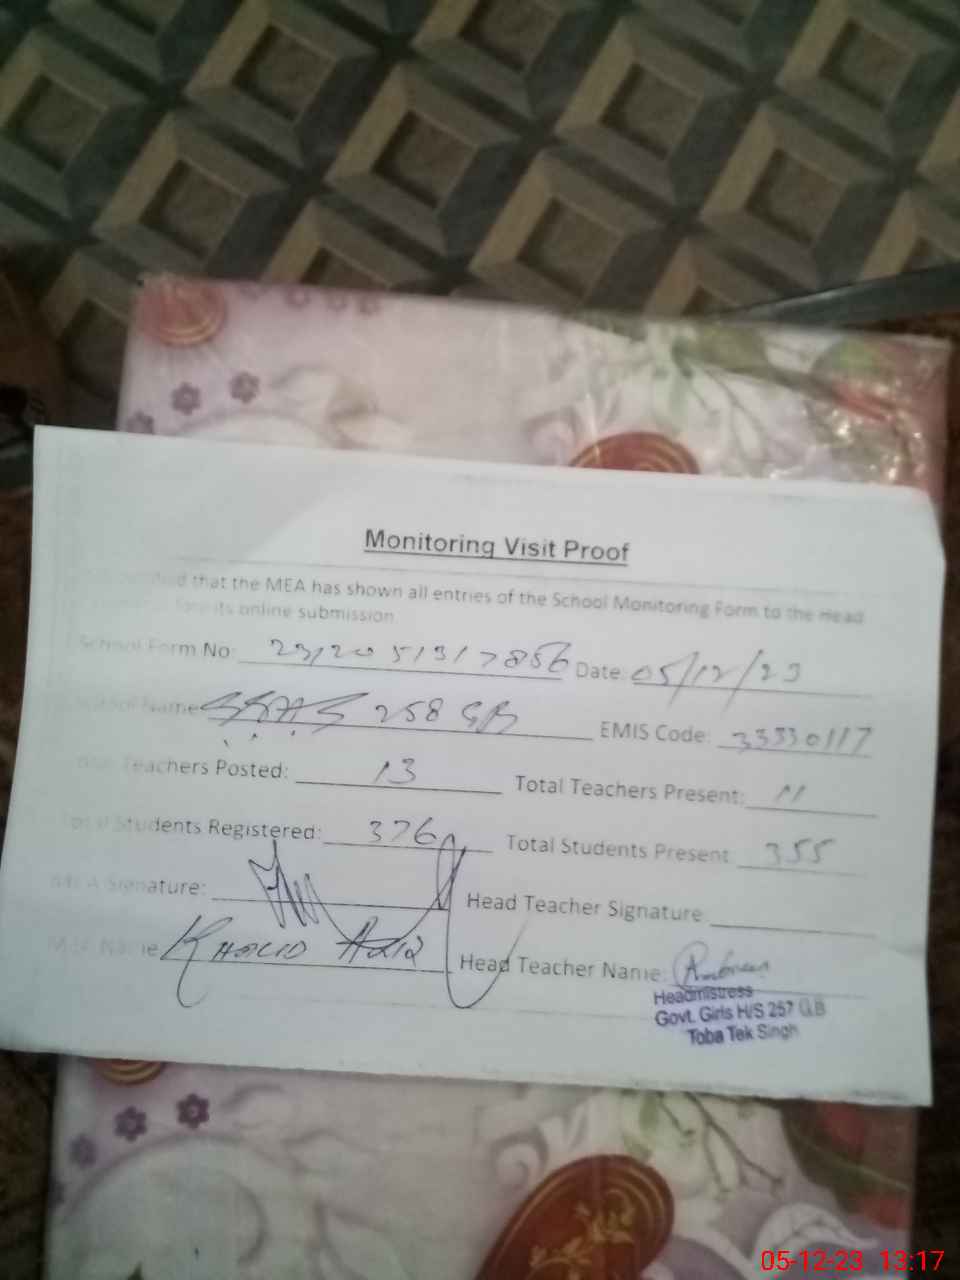 Monitoring Visit Proof
that the MEA has shown all entries of the School Monitoring Form to the Head
its online submission
School Form No: Date: 05/12/23
School Name 258 GB EMIS Code: 33330117
Teachers Posted: 13 Total Teachers Present: 11
Total Students Registered: 376 Total Students Present: 355
MEA Signature: Head Teacher Signature:
MEA Name KHALID AZIZ Head Teacher Name: Ambreen
Headmistress
Govt. Girls H/S 257 G.B
Toba Tek Singh
05-12-23 13:17